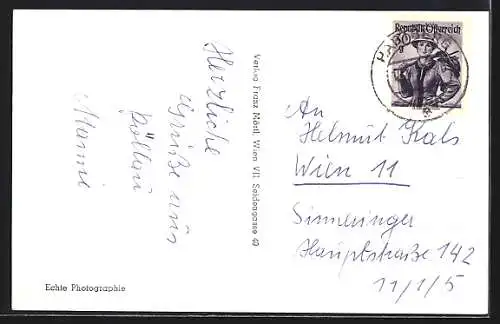 Herzliche
Grüße aus
Pöllau
Mami
Verlag Franz Mörtl, Wien VII. Seidengasse 49
Echte Photographie
Republik Österreich
An
Helmut Kals
Wien 11
Simmeringer
Hauptstraße 142
11/1/5